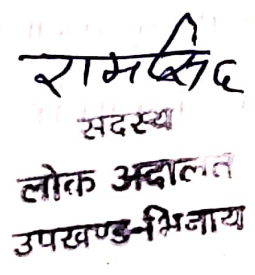 रामसिंह
सदस्य
लोक अदालत
उपखण्ड-भिनाय